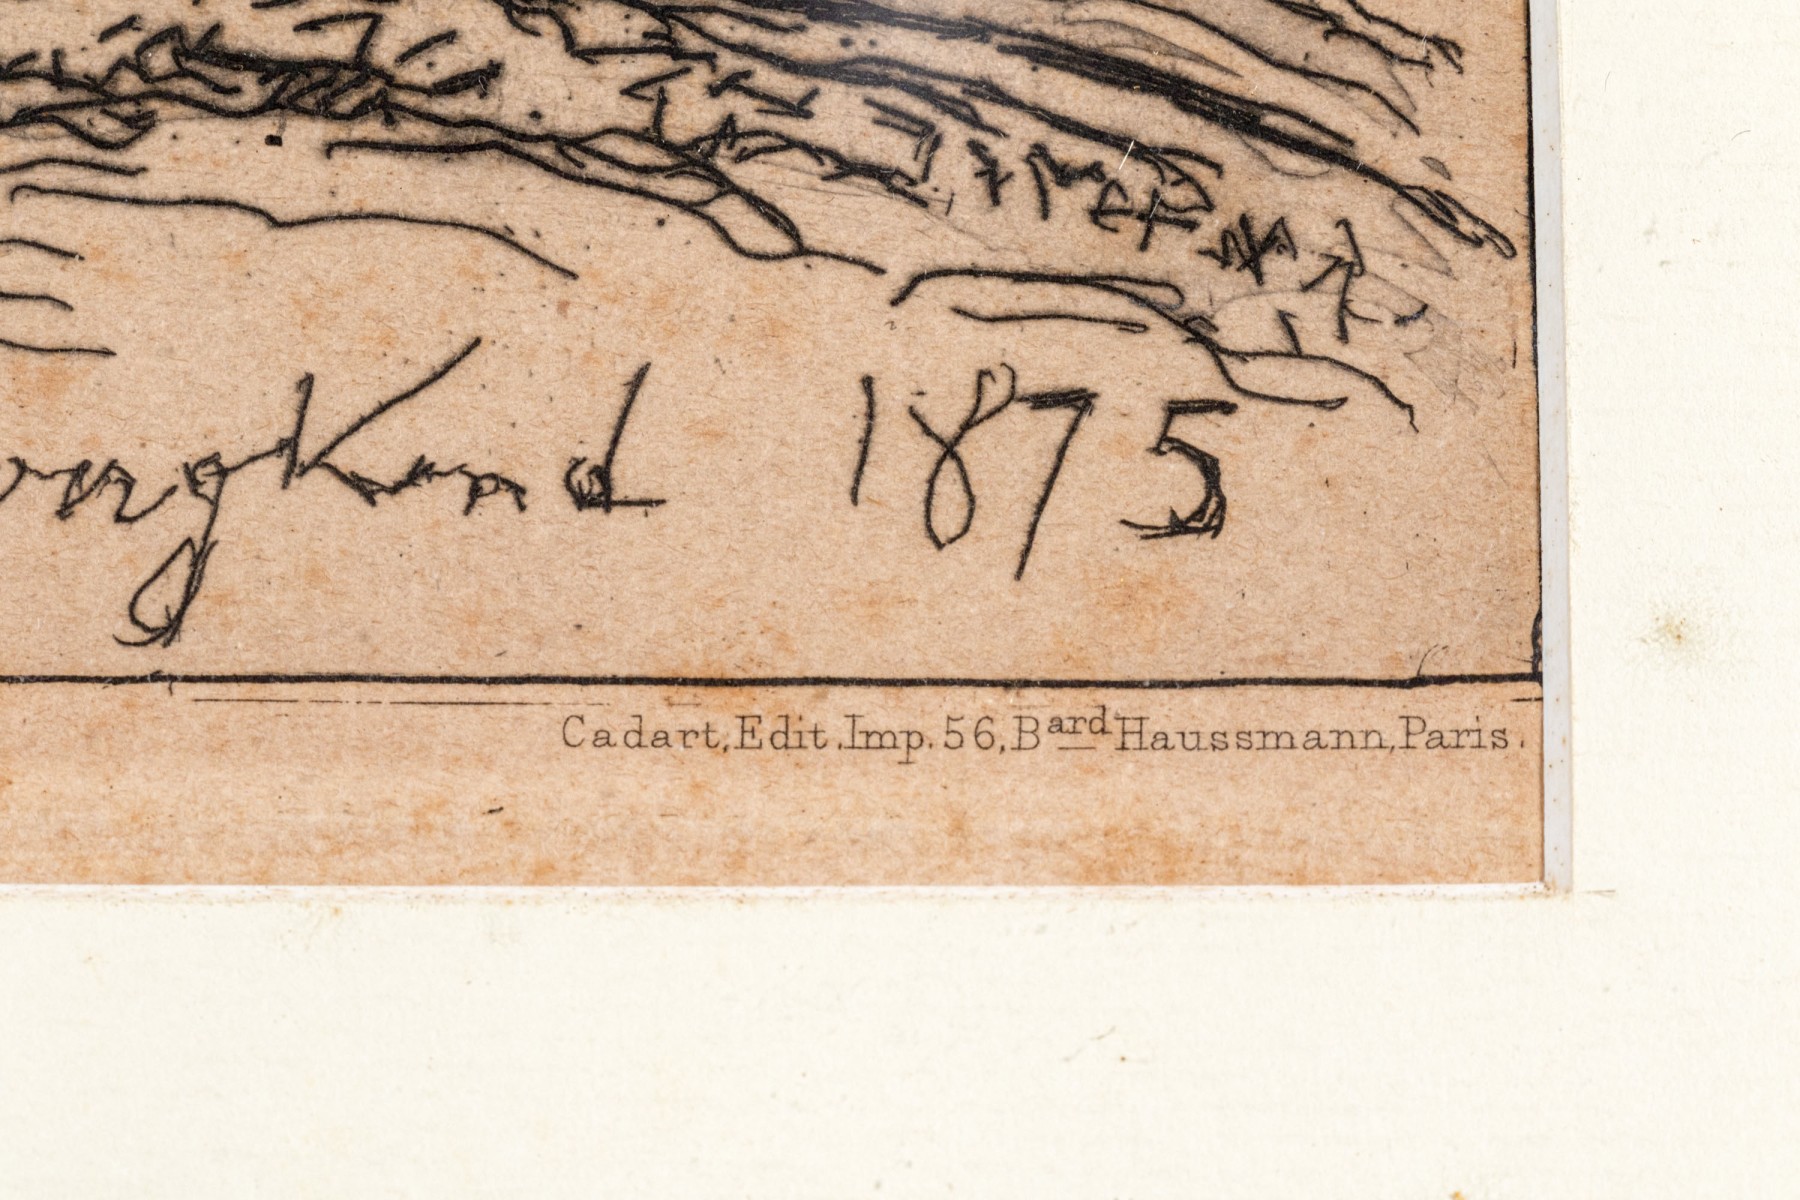 ongkind 1875
Cadart, Edit. Imp. 56, Bard Haussmann, Paris.